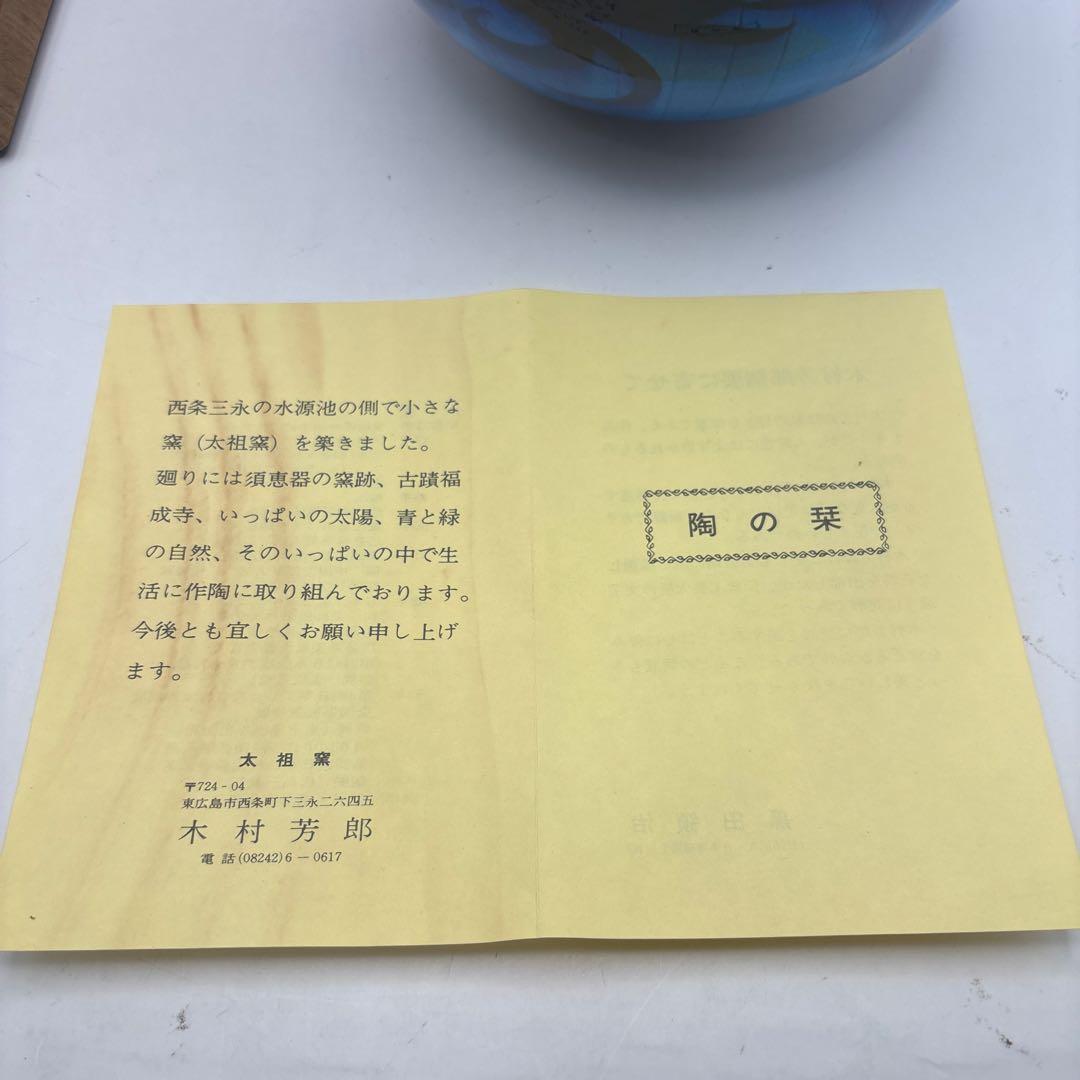 西条三永の水源池の側で小さな
窯（太祖窯）を築きました。
廻りには須恵器の窯跡、古蹟福
成寺、いっぱいの太陽、青と緑
の自然、そのいっぱいの中で生
活に作陶に取り組んでおります。
今後とも宜しくお願い申し上げ
ます。
太祖窯
〒724-04
東広島市西条町下三永二六四五
木村芳郎
電話(08242)6-0617
陶の栞